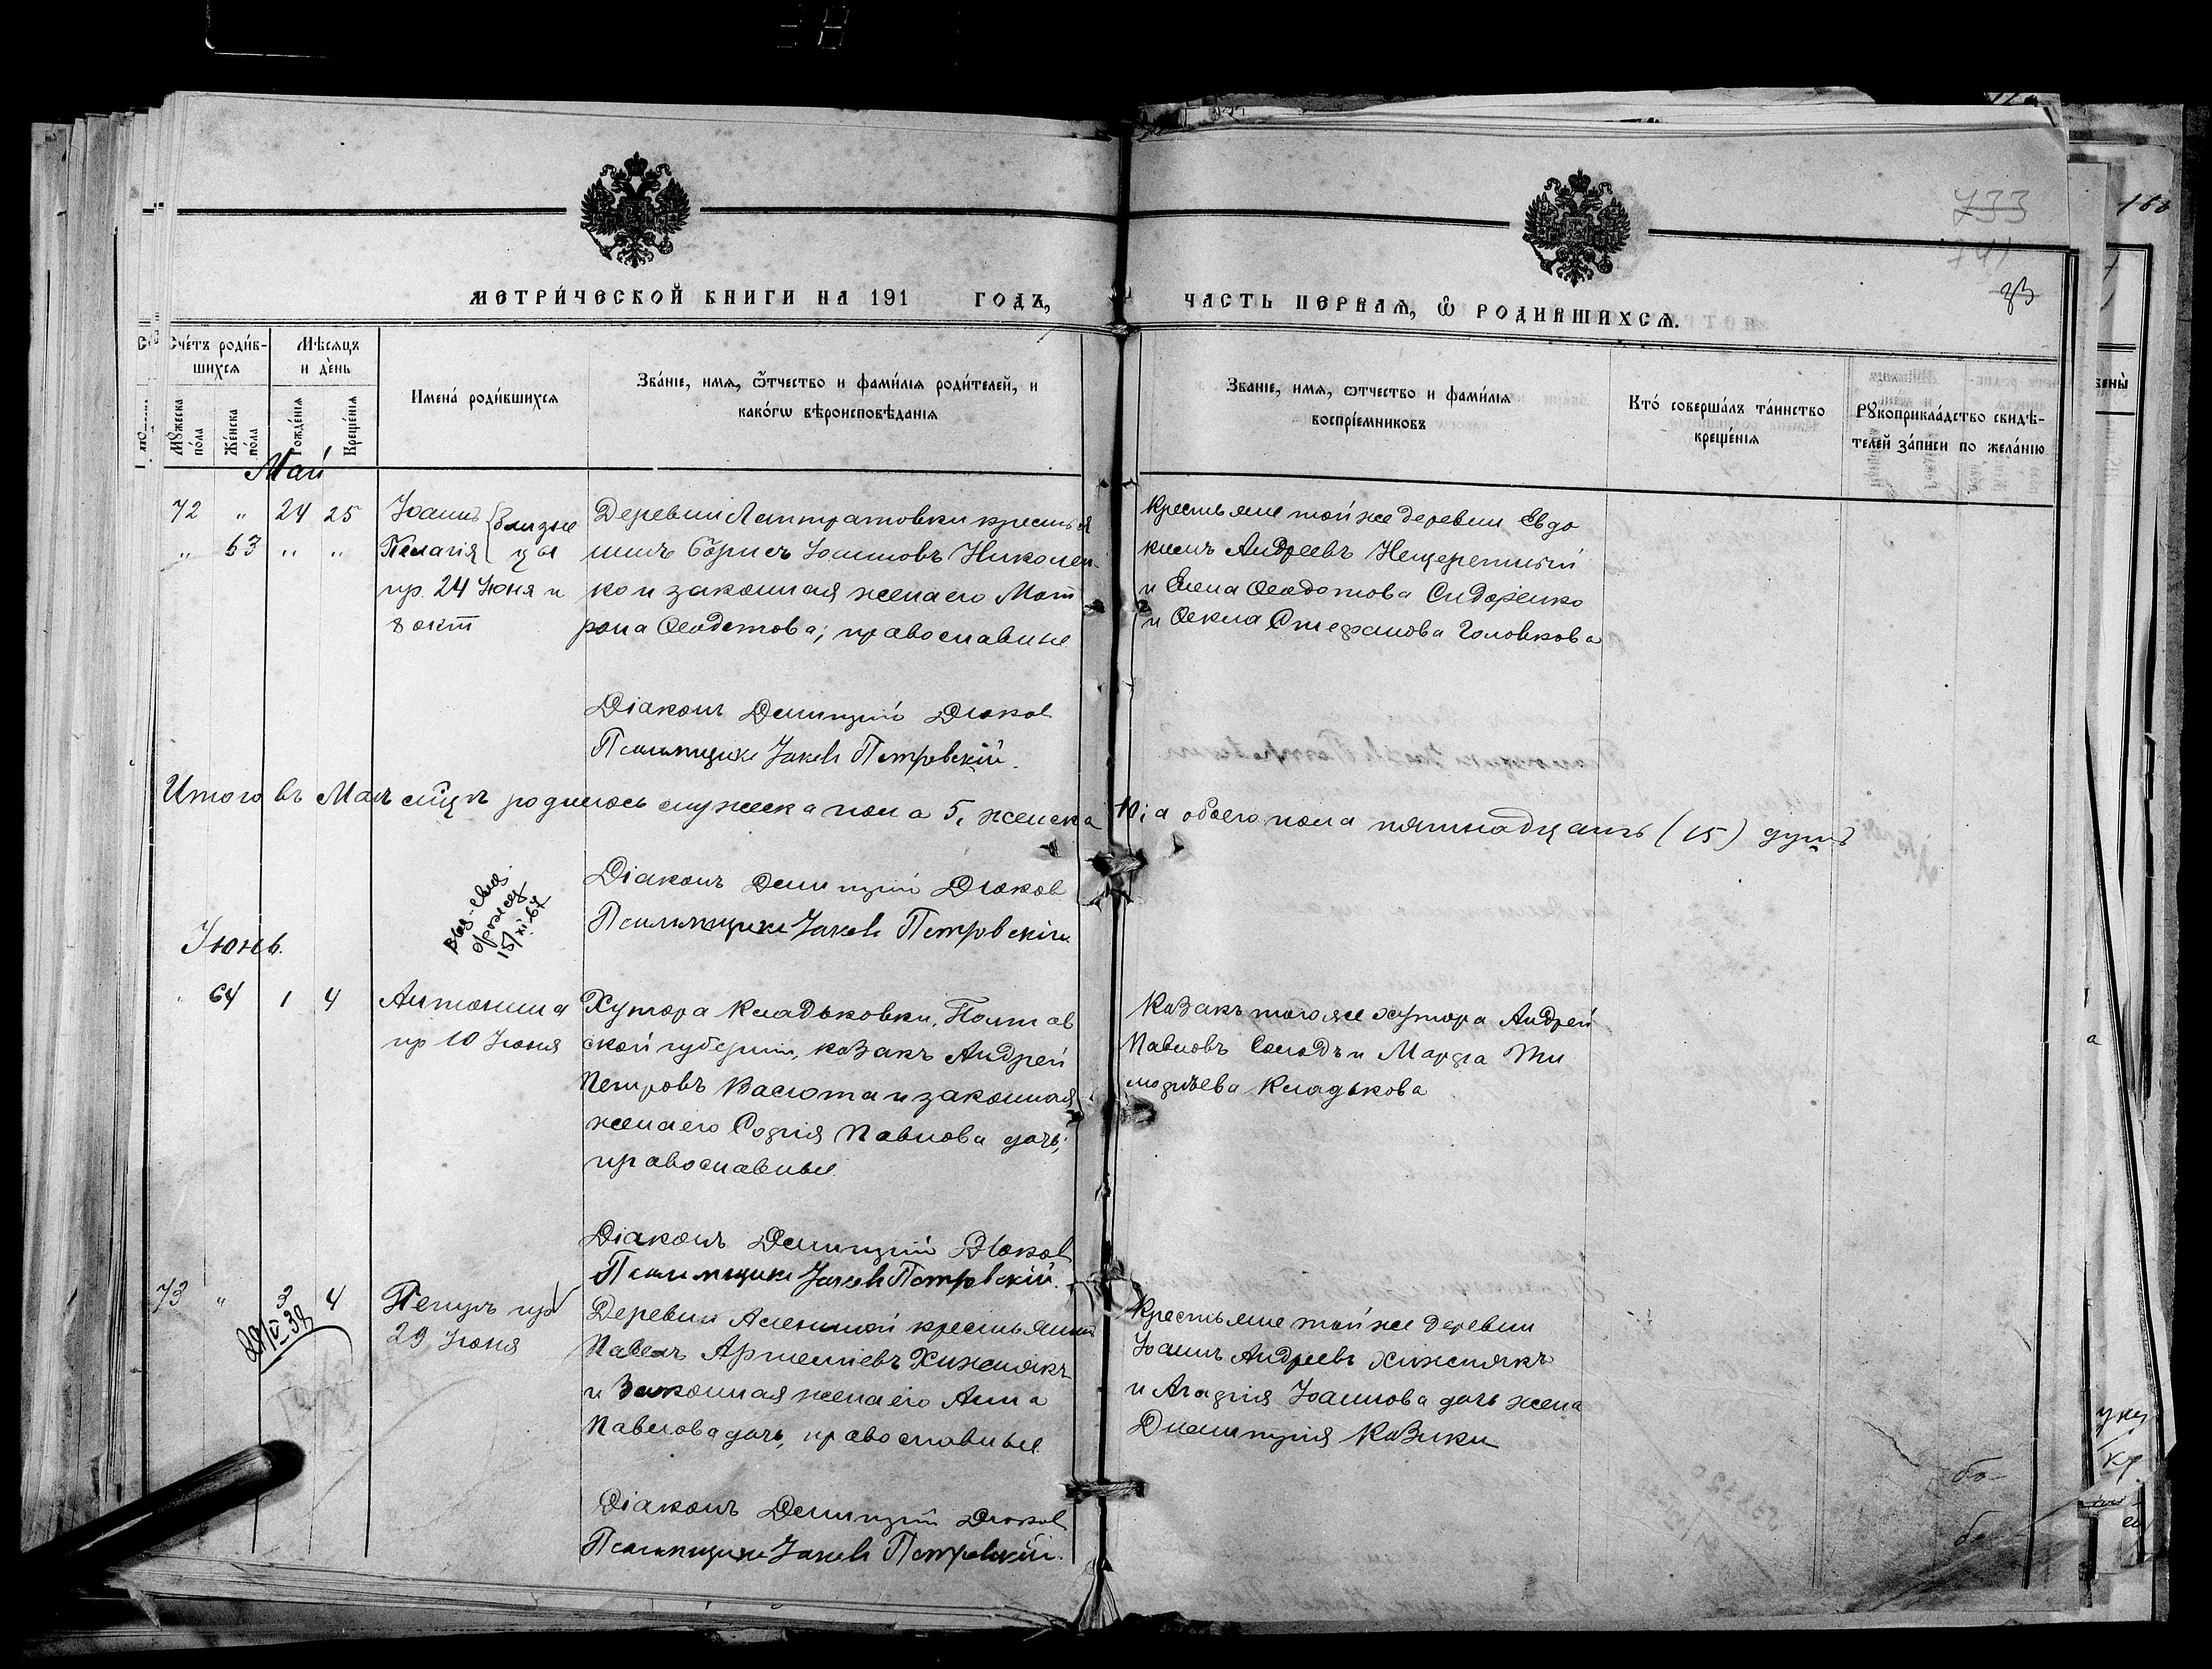 733
741
83
188
МЕТРИЧЕСКОЙ КНИГИ НА 191 ГОДЪ,
ЧАСТЬ ПЕРВАЯ, Ѿ РОДИВШИХСЯ.
Счетъ родив-
шихся
Мѣсяцъ
и день
Мужеска
пола
Женска
пола
Рожденія
Крещенія
Имена родившихся
Званіе, имя, ѿтчество и фамилія родителей, и
какогѡ вѣроисповѣданія
Званіе, имя, ѡтчество и фамилія
воспріемниковъ
Кто совершалъ таинство
крещенія
Рукоприкладство свидѣ-
телей записи по желанію
Май
72 " 24 25 Іоаннъ { близне
" 63 " " Пелагія { цы
пр. 24 Іюня и
8 окт
Деревни крестья
нинъ Борисъ Іоанновъ Николен
ко и законная жена его Мат
рона Ѳеодотова; православные
Крестьяне той же деревни Евдо
кимъ Андреевъ Нещеретный
и Елена Ѳеодотова Сидоренко
и Ѳекла Стефанова Головкова
Діаконъ Димитрій Дюков
Псаломщикъ Іаковъ Петровскій.
Итого въ Маѣ мѣцѣ родилось мужеска пола 5, женска 10; а обоего пола пятнадцать (15) душъ
Діаконъ Димитрій Дюков
Псаломщикъ Іаковъ Петровскій
15/XI-67
Іюнь.
" 64 1 4 Антонина
пр 10 Іюня
Хутора Кладьковки, Полтав
ской губерніи, козакъ Андрей
Петровъ Васюта и законная
жена его Софія Павлова дочь;
православные.
Козакъ того же хутора Андрей
Павловъ Солодъ и Марфа Ти
мофѣева Кладькова
Діаконъ Димитрій Дюков
Псаломщикъ Іаковъ Петровскій.
73 " 3 4 Петръ пр
29 Іюня
Деревни крестьянинъ
Павелъ Артеміевъ Хижнякъ
и законная жена его Анна
Павлова дочь, православные.
Крестьяне той же деревни
Іоаннъ Андреевъ Хижнякъ
и Агафія Іоаннова дочь жена
Димитрія Козики
Діаконъ Димитрій Дюков
Псаломщикъ Іаковъ Петровскій.